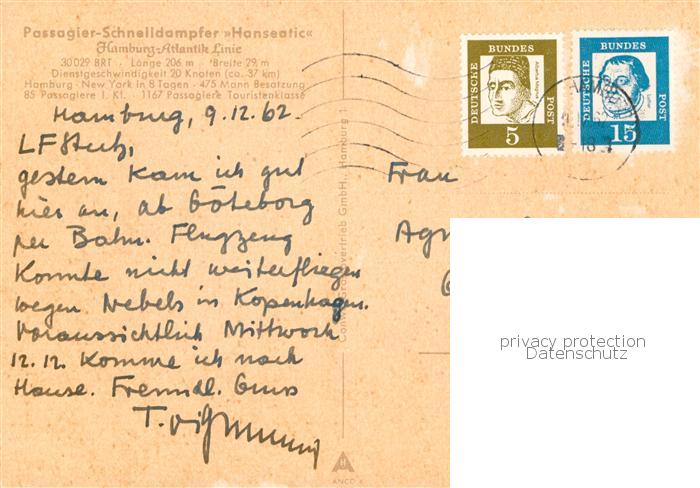 Passagier-Schnelldampfer »Hanseatic«
Hamburg-Atlantik Linie
30029 BRT · Länge 206 m · Breite 29 m
Dienstgeschwindigkeit 20 Knoten (ca. 37 km)
Hamburg - New York in 8 Tagen · 475 Mann Besatzung
85 Passagiere I. Kl. · 1167 Passagiere Touristenklasse
Hamburg, 9.12.62.
gestern kam ich gut
hier an, ab Göteborg
per Bahn. Flugzeug
konnte nicht weiterfliegen
wegen Nebels in Kopenhagen.
Voraussichtlich Mittwoch
12.12. komme ich nach
Hause. Freundl. Gruss
T.
DEUTSCHE
BUNDES
POST
5
DEUTSCHE
BUNDES
POST
15
Frau
GmbH, Hamburg
ANCO
privacy protection
Datenschutz